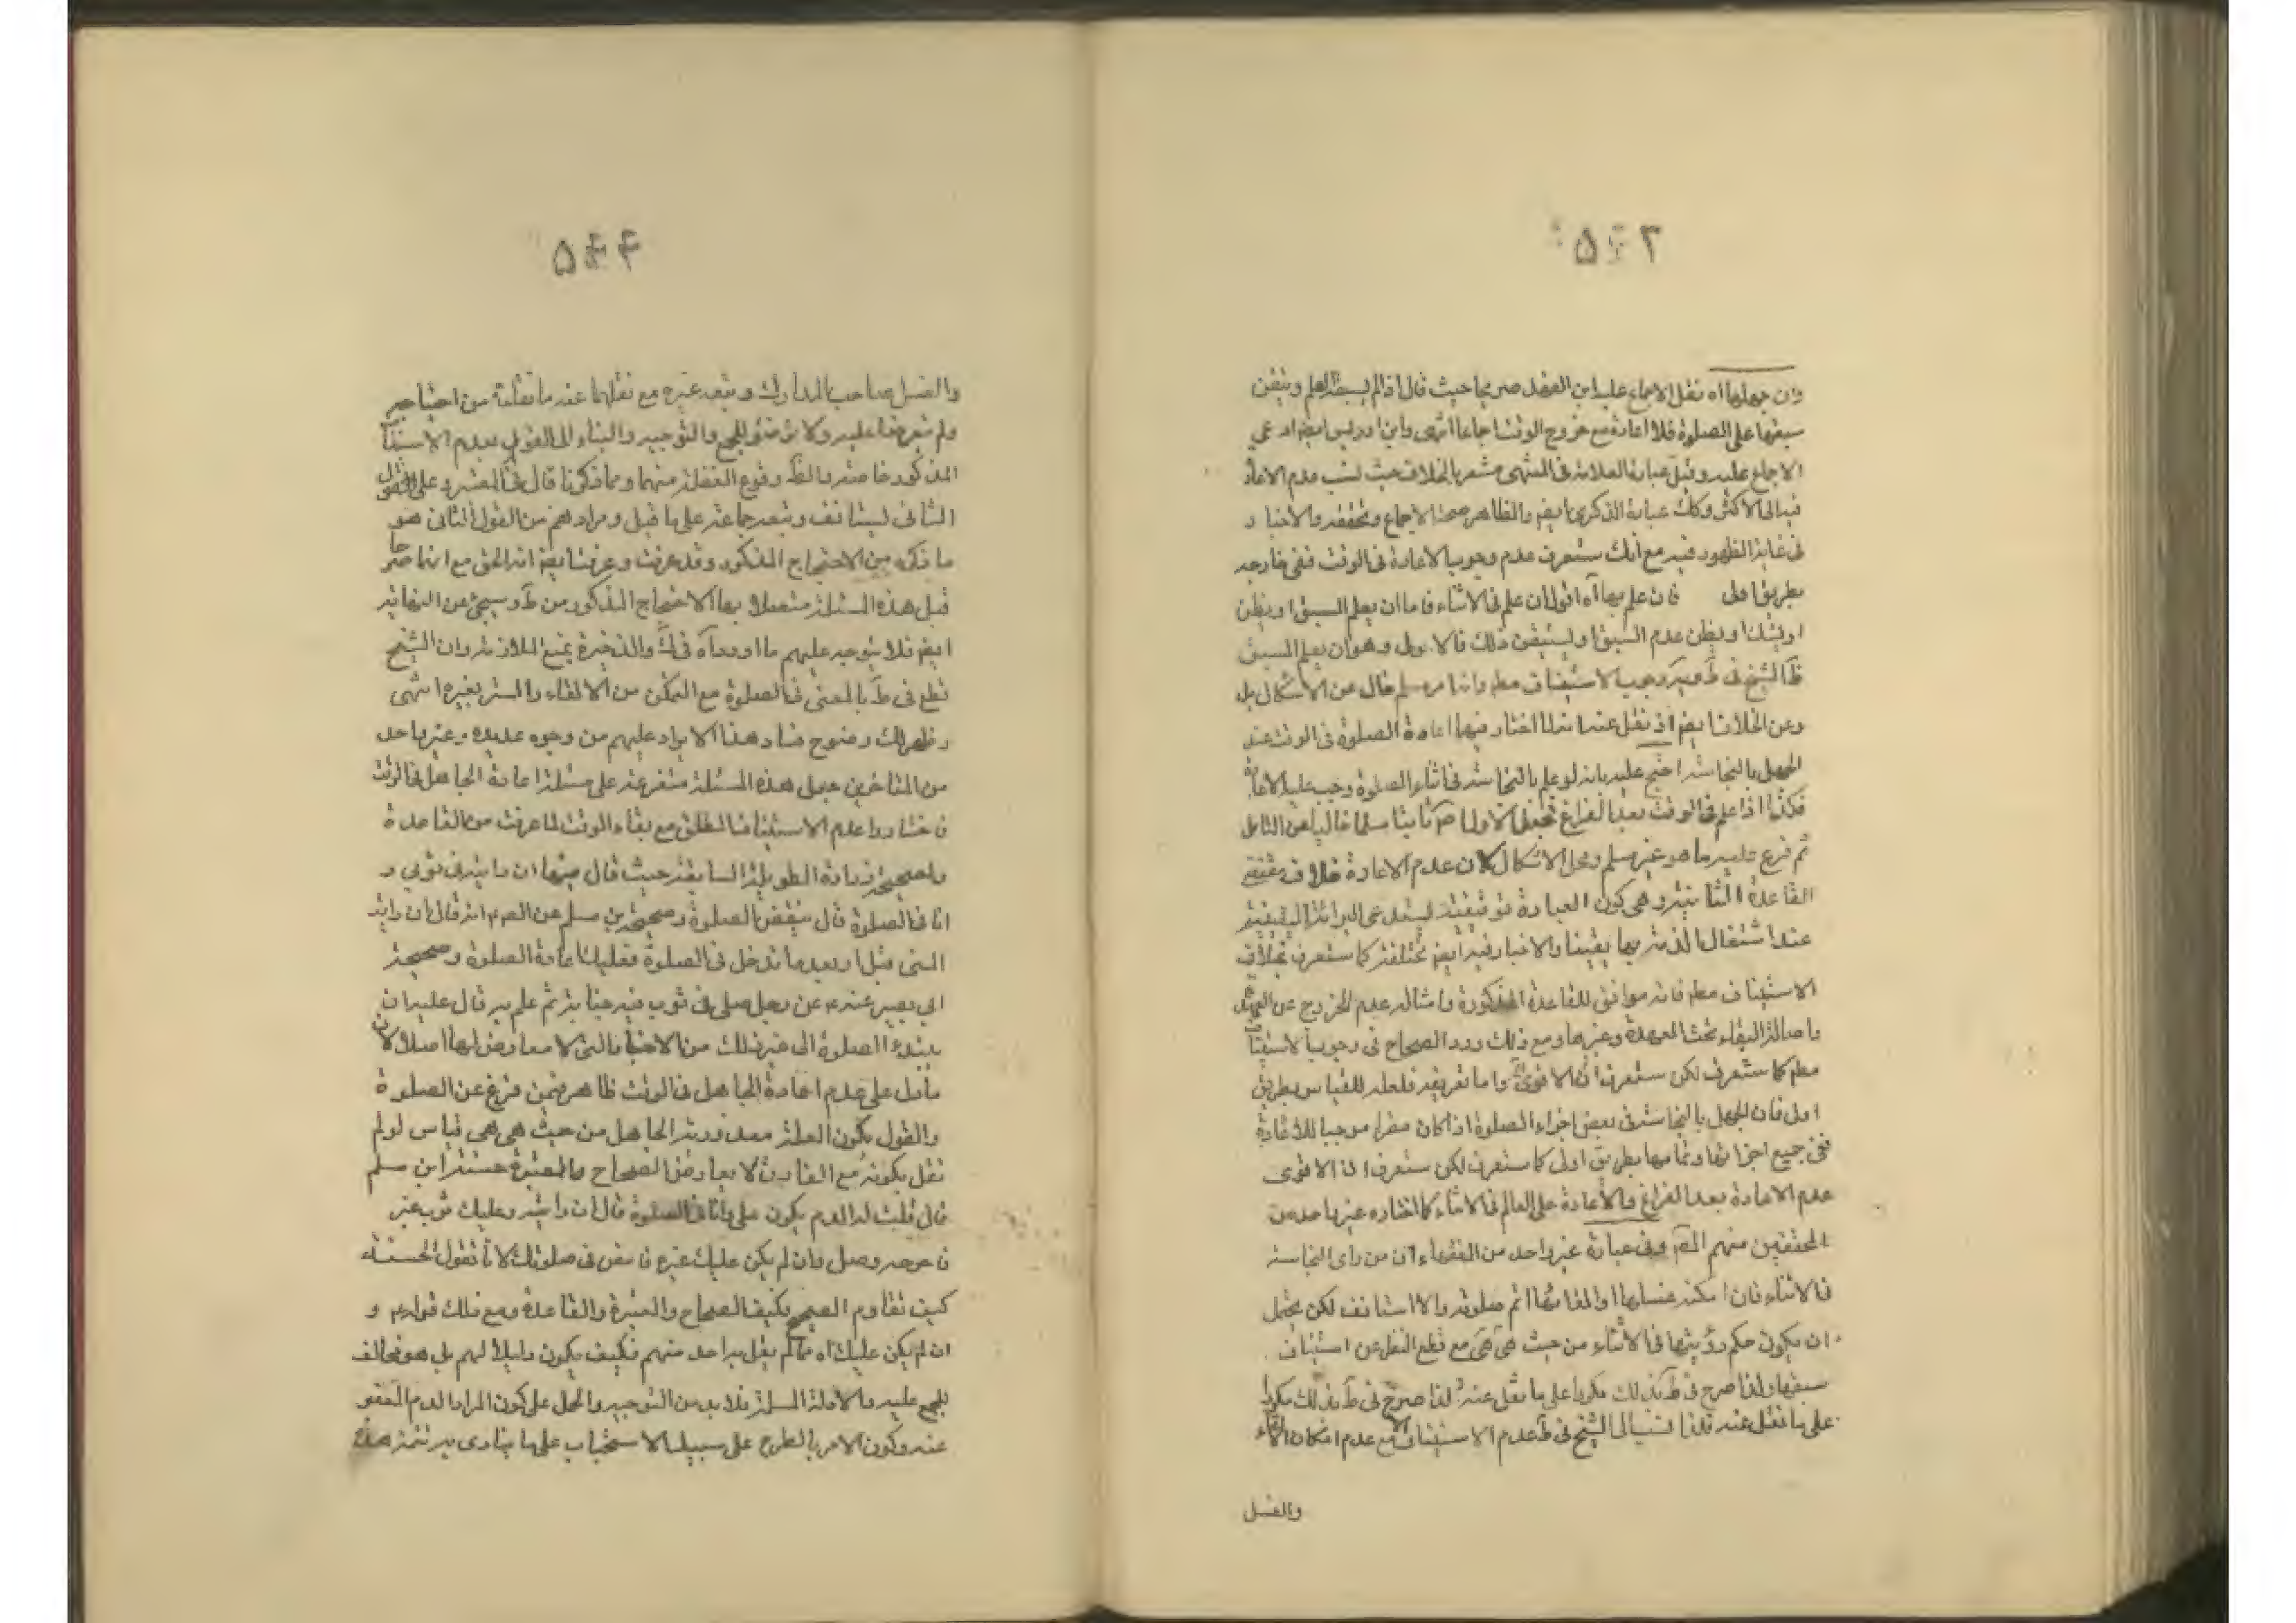 وان جهلها آه نقل الاجماع عليه ابن الفهد صريحا حيث قال اذا لم يسبقه العلم وتيقن
سبقها على الصلوة فلا اعادة مع خروج الوقت اجماعا انتهى وابن ادريس ايضا ادعى
الاجماع عليه وقيل عبارة العلامة فى المنتهى مشعر بالخلاف حيث نسب عدم الاعادة
فيه الى الاكثر وكك عبارة الذكرى ايضا والظاهر صحة الاجماع وتحققه والاخبار
فى غاية الظهور فيه مع انك ستعرف عدم وجوب الاعادة فى الوقت ففى خارجه
بطريق اولى فان علم بها آه اقول ان علم فى الاثناء فاما ان يعلم السبق او يظن
او يشك او يظن عدم السبق او يستيقن ذلك فالاول وهو ان يعلم السبق
الشيخ فى ط وجوب الاستيناف مطم خال عن الاشكال بل
وعن الخلاف ايضا اذ نقل عنه انه لما اختار فيها اعادة الصلوة فى الوقت عند
الجهل بالنجاسة احتج عليه بانه لو علم بالنجاسة فى اثناء الصلوة وجب عليه الاعادة
فكذا اذا علم فى الوقت بعد الفراغ
ثم فرع عليه ما هو غير مسلم ومحل الاشكال لان عدم الاعادة خلاف مقتضى
القاعدة الثابتة وهى كون العبادة توقيفية يستدعى البرائة اليقينية
عند اشتغال الذمة بها يقينا والاخبار فيه ايضا مختلفة كما ستعرف بخلاف
الاستيناف مطم فانه موافق للقاعدة المذكورة وامثاله عدم الخروج عن العهدة
واصالة البقاء تحت العهدة وغيرها ومع ذلك ورد الصحاح فى وجوب الاستيناف
مطم كما ستعرف لكن ستعرف ان الاقوى واما تفريعه فلعله للقياس بطريق
اولى فان الجهل بالنجاسة فى بعض اجزاء الصلوة اذا كان مضرا موجبا للاعادة
ففى جميع اجزائها وتمامها بطريق اولى كما ستعرف لكن ستعرف ان الاقوى
عدم الاعادة بعد الفراغ والاعادة على العالم فى الاثناء كما اختاره غير واحد من
المحققين منهم المص وفى عبارة غير واحد من الفقهاء ان من راى النجاسة
فى الاثناء فان امكنه غسلها او القائها اتم صلوته والا استانف لكن يحتمل
ان يكون حكم رؤيتها فى الاثناء من حيث هى هى مع قطع النظر عن استيناف
سبقها ولذا صرح فى ط بذلك مكررا على ما نقل عنه لذا صرح فى ط بذلك مكررا
على ما نقل عنه فلذا نسب الى الشيخ فى ط عدم الاستيناف الا مع عدم امكان الالقاء
والغسل
والغسل صاحب المدارك وتبعه غيره مع نقلهما عنه ما نقلته من احتجاجه
ولم يتعرضا عليه ولا بنى للجمع والتوجيه والبناء الى القول بعدم الاستيناف
المذكور خاصة والظ وقوع الغفلة منهما ومما ذكرنا قال فى المعتبر وعلى القول
الثانى يستانف وتبعه جماعة على ما قيل ومرادهم من القول الثانى هو
ما ذكره من الاحتجاج المذكور وقد عرفت وعرفت ايضا انه الحق مع انها صرحا
قبل هذه المسئلة متصلا بها الاحتجاج المذكور من ط وسيجئ عن النهاية
ايضا فلا يتوجه عليهم ما اورداه فى ك والذخيرة بمنع الملازمة وان الشيخ
قطع فى ط بالمضى فى الصلوة مع التمكن من الالقاء والستر بغيره انتهى
وظهر لك وضوح فساد هذا الايراد عليهم من وجوه عديدة وغير واحد
من المتاخرين جعل هذه المسئلة متفرعة على مسئلة اعادة الجاهل فى الوقت
فاختاروا عدم الاستيناف المطلق مع بقاء الوقت لما عرفت من القاعدة
ولصحيحة زرارة الطويلة السابقة حيث قال فيها ان رايته فى ثوبى و
انا فى الصلوة قال تنقض الصلوة وصحيحة بن مسلم عن الص م انه قال ان رايت
المنى قبل او بعد ما تدخل فى الصلوة فعليك اعادة الصلوة وصحيحة
ابى بصير عنه م عن رجل صلى فى ثوب فيه جنابة ثم علم به قال عليه ان
يبتدء الصلوة الى غير ذلك من الاخبار التى لا معارض لها اصلا لان
ما دل على عدم اعادة الجاهل فى الوقت ظاهر فيمن فرغ عن الصلوة
والقول بكون العلة معذورية الجاهل من حيث هى هى قياس لو لم
نقل بكونه مع الفارق لا يعارض الصحاح والمعتبرة حسنة ابن مسلم
قال قلت له الدم يكون على وانا فى الصلوة قال ان رايته وعليك ثوب غيره
فاطرحه وصل وان لم يكن عليك غيره فامض فى صلوتك لانا نقول الحسنة
كيف تقاوم الصحيح فكيف الصحاح والمعتبرة والقاعدة ومع ذلك قوله م و
ان لم يكن عليك آه مما لم يقل به احد منهم فكيف يكون دليلا لهم بل هو مخالف
للمجمع عليه والادلة المسلمة فلا بد من التوجيه والحمل على كون المراد الدم المعفو
عنه وكون الامر بالطرح على سبيل الاستحباب على ما ينادى به تتمة هذه